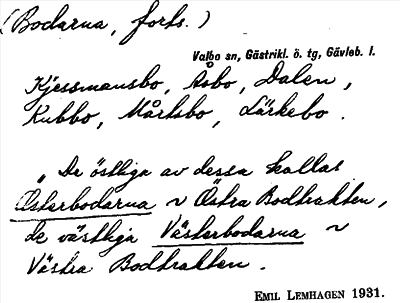 (Bodarna, forts.)
Valbo sn, Gästrikl. ö. tg, Gävleb. l.
Kjessmansbo, Åsbo, Dalen,
Kubbo, Mårtsbo, Lärkebo.
„De östliga av dessa kallas
Österbodarna ~ Östra Bodtrakten,
de västliga Västerbodarna ~
Västra Bodtrakten.
EMIL LEMHAGEN 1931.